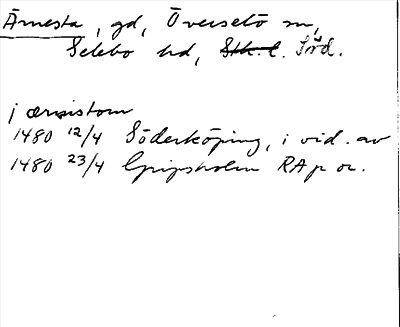 Ärnesta, gd, Överselö sn,
Selebo hd, Sth. l. Söd.
j ærnistom
1480 12/4 Söderköping, i vid. av
1480 23/4 Gripsholm RAp or.